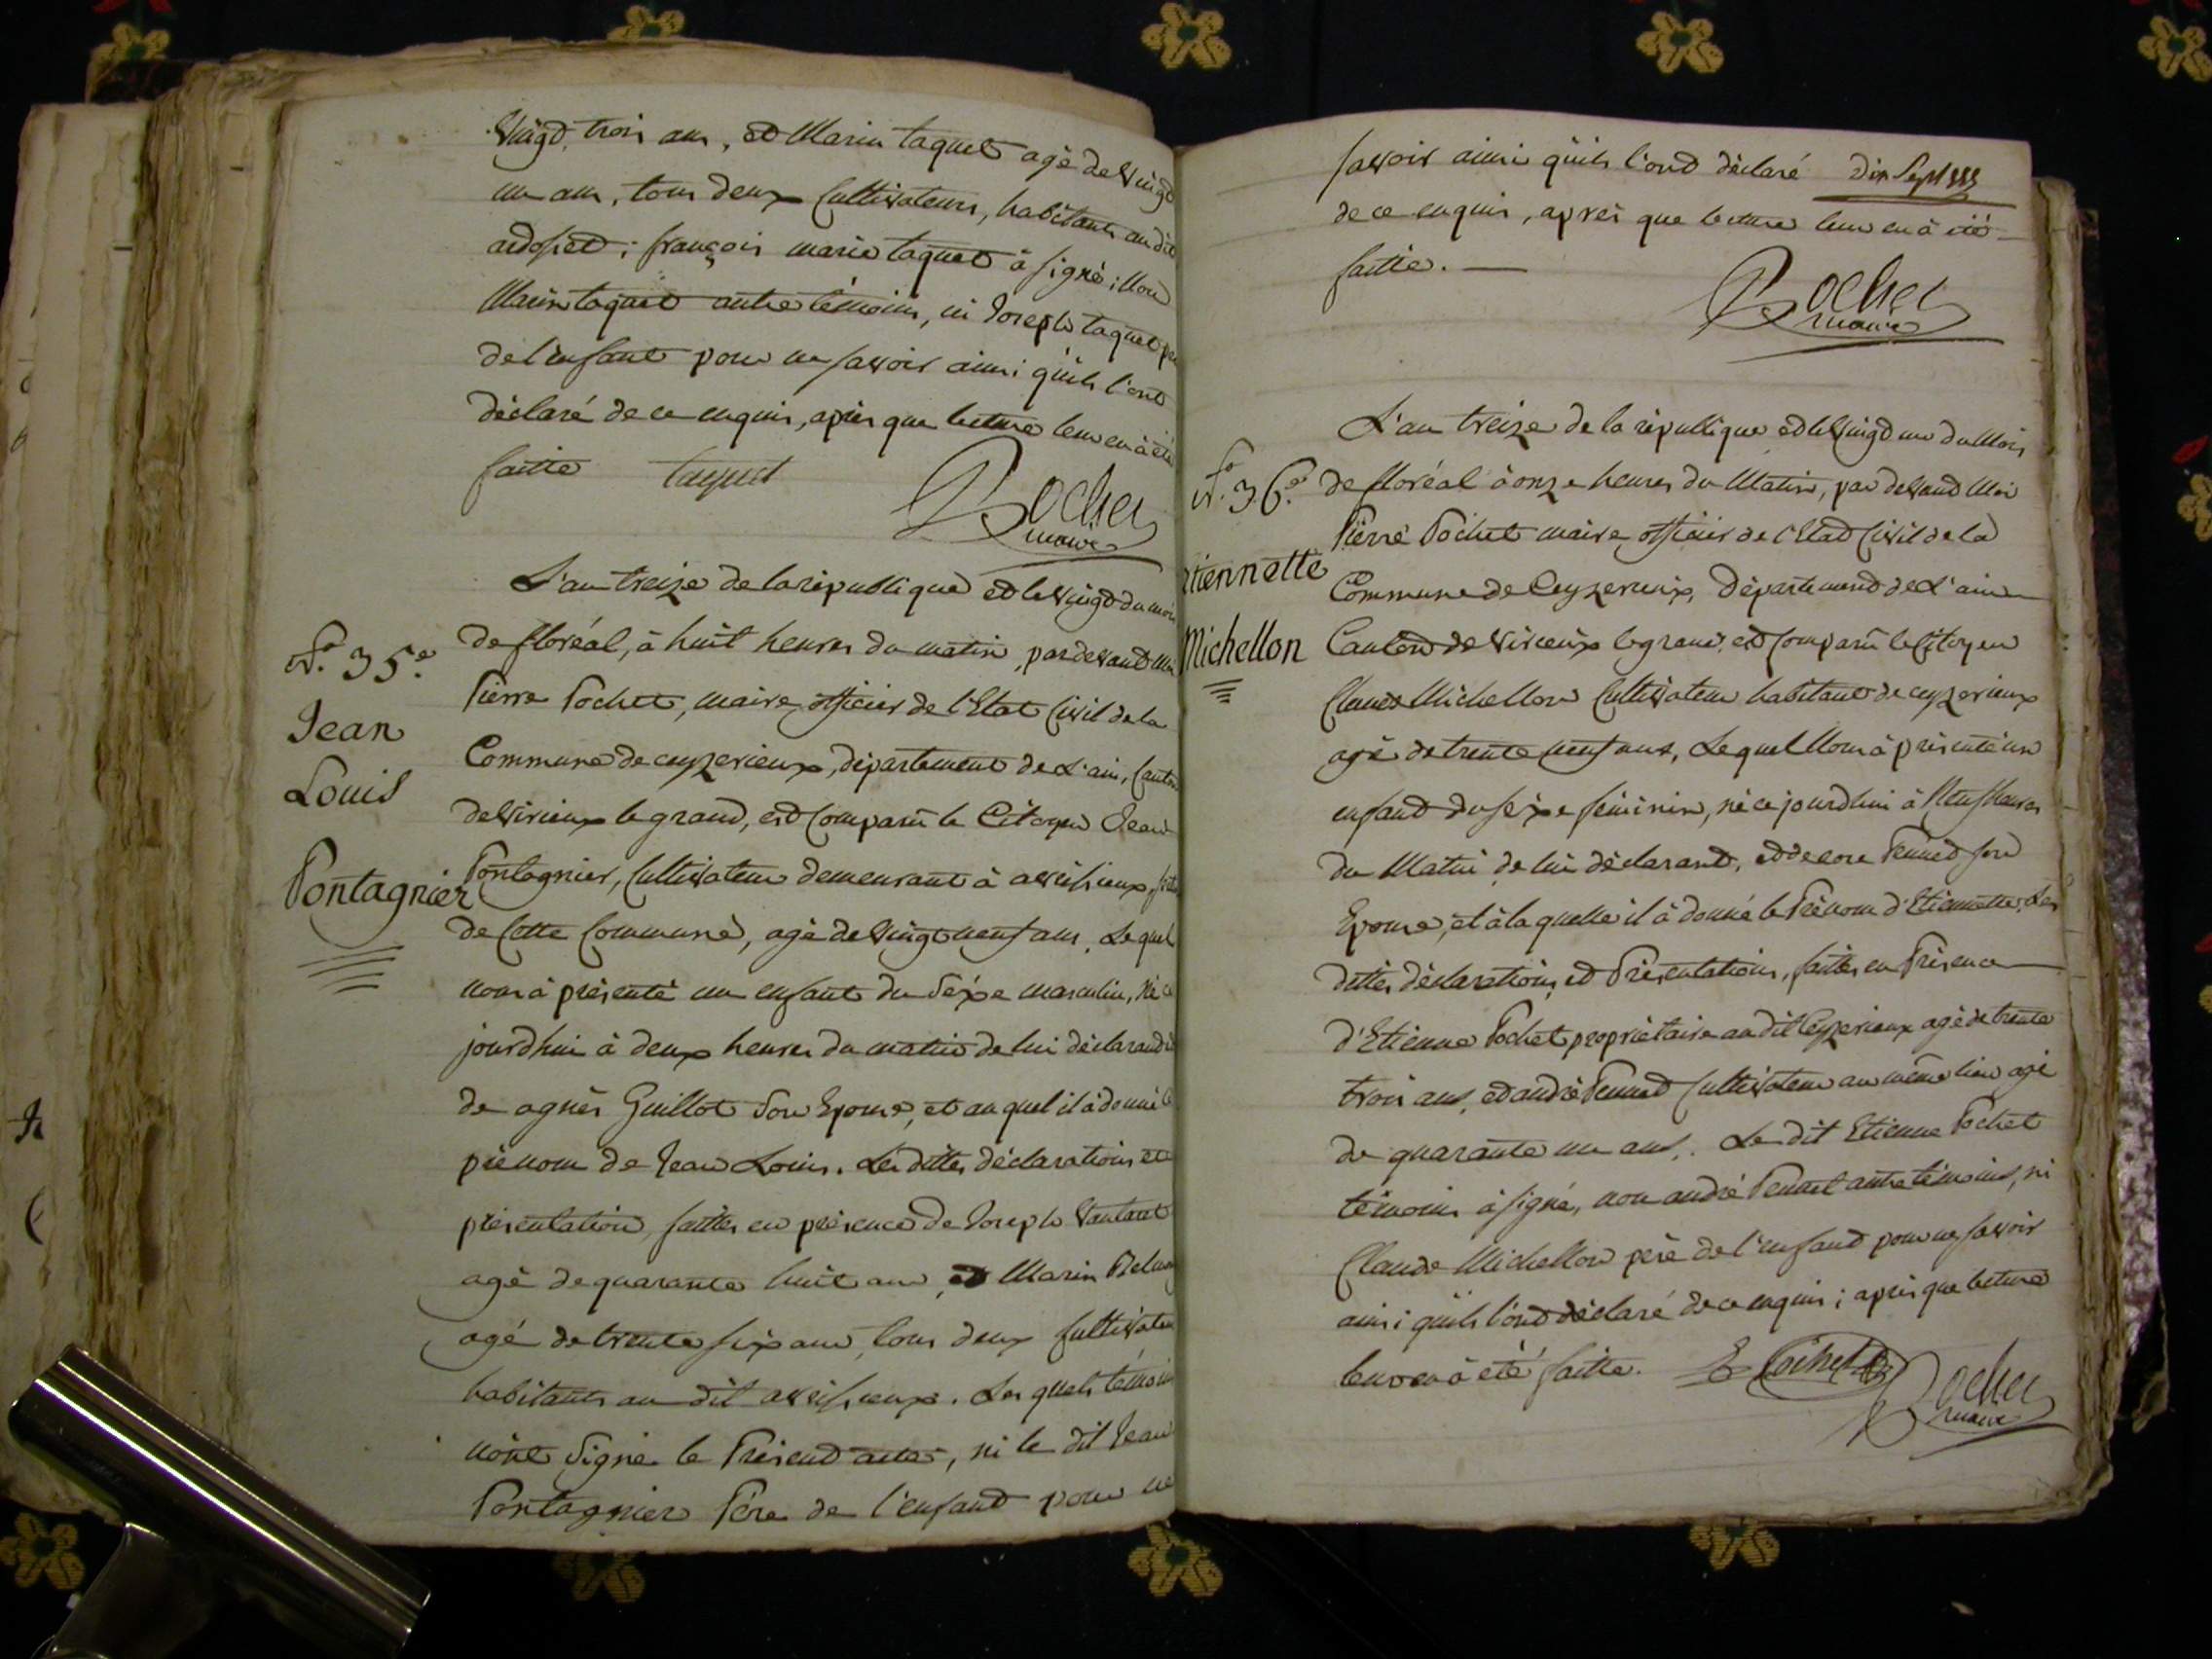 Vingd, trois ans, ed Marin taquet agé de Vingd
un ans, tous deux Cultivateurs, habitants au dit
ardosset; françois marie taquet à signé; Non
Marin taquet autre témoins, ni Joseph taquet pe
de l'enfant pour ne savoir ainsi qu'ils l'ont
déclaré de ce enquis, après que lecture leur en à été
faitte taquet
Pochet
maire
L'an treize de la république ed le Vingd du mois
N.º 35.e
de floréal, à huit heures du matin, pardevant moi
Jean
Pierre Pochet, maire, officier de l'Etat Civil de la
Louis
Commune de ceyzerieux, département de L'ain, Canton
de Virieux le grand, est comparû le Citoyen Jean
Pontagnier
Pontagnier, Cultivateur demeurant à avrissieux,
de Cette Commune, agé de Vingt neuf ans. Lequel
nous à présenté un enfant du Séxe masculin, Né ce
jourdhui à deux heures du matin de lui déclarand
de agnès Guillot Son Epouse, et au quel il à donné le
prénom de Jean Louis. Les dittes déclarations et
présentation, faittes en présence de Joseph Vantaret
agé de quarante huit ans, ed Marin
agé de trente six ans, tous deux Cultivateu
habitants au dit avrissieux. Les quels témoin
nônt Signé le Présend acte, ni le dit Jean
Pontagnier Père de l'enfand pour ne
savoir ainsi qu'ils l'ond déclaré
de ce enquis, après que lecture leur en à été
faitte.
Pochet
maire
L'an treize de la république ed le Vingd un du Mois
N.º 36.e
de floréal à onze heures du Matin, par devand Moi
Pierre Pochet maire officier de l'Etad Civil de la
tiennette
Commune de Ceyzerieux, Département de L'ain
Michellon
Canton de Virieux le grand, est comparû le Citoyen
Claude Michellon Cultivateur habitant de ceyzerieux
agé de trente neuf ans, Lequel Nous à présenté un
enfand du séxe féminin, né ce jourdhui à Neuf heures
du Matin de lui déclarand, ed de Pennet son
Epouse, et à la quelle il à donné le Prénom d'Etiennette. Les
dittes déclarations ed Présentations, faittes en Présence
d'Etienne Pochet propriétaire au dit Ceyzerieux agé de trente
trois ans, ed andré Pennet Cultivateur au même lieu agé
de quarante un ans. Le dit Etienne Pochet
témoins à signé, non andré Pennet autre témoins, ni
Claude Michellon père de l'enfand pour ne savoir
ainsi qu'ils l'ond déclaré de ce enquis; après que lecture
leur en à été faitte. E Pochet
Pochet
maire